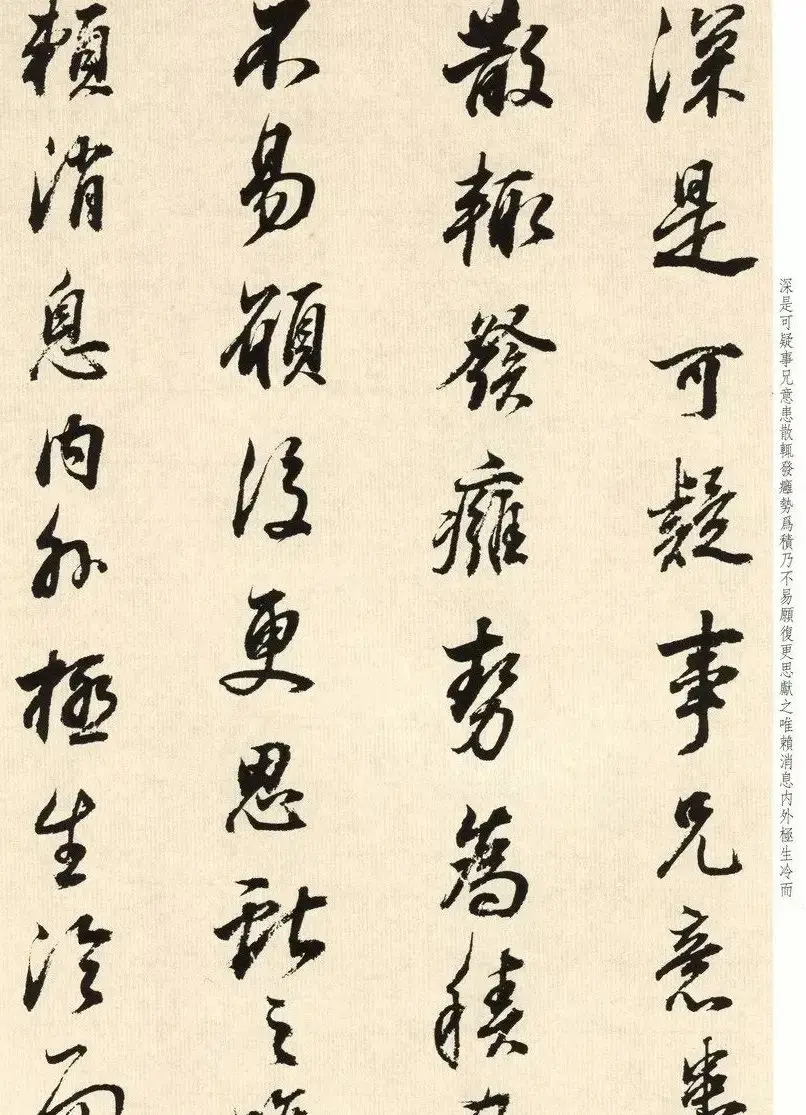 深是可疑事兄意患
散輒發癰勢為積乃
不易願復更思獻之唯
賴消息內外極生冷而
深是可疑事兄意患散輒發癰勢爲積乃不易願復更思獻之唯賴消息内外極生冷而